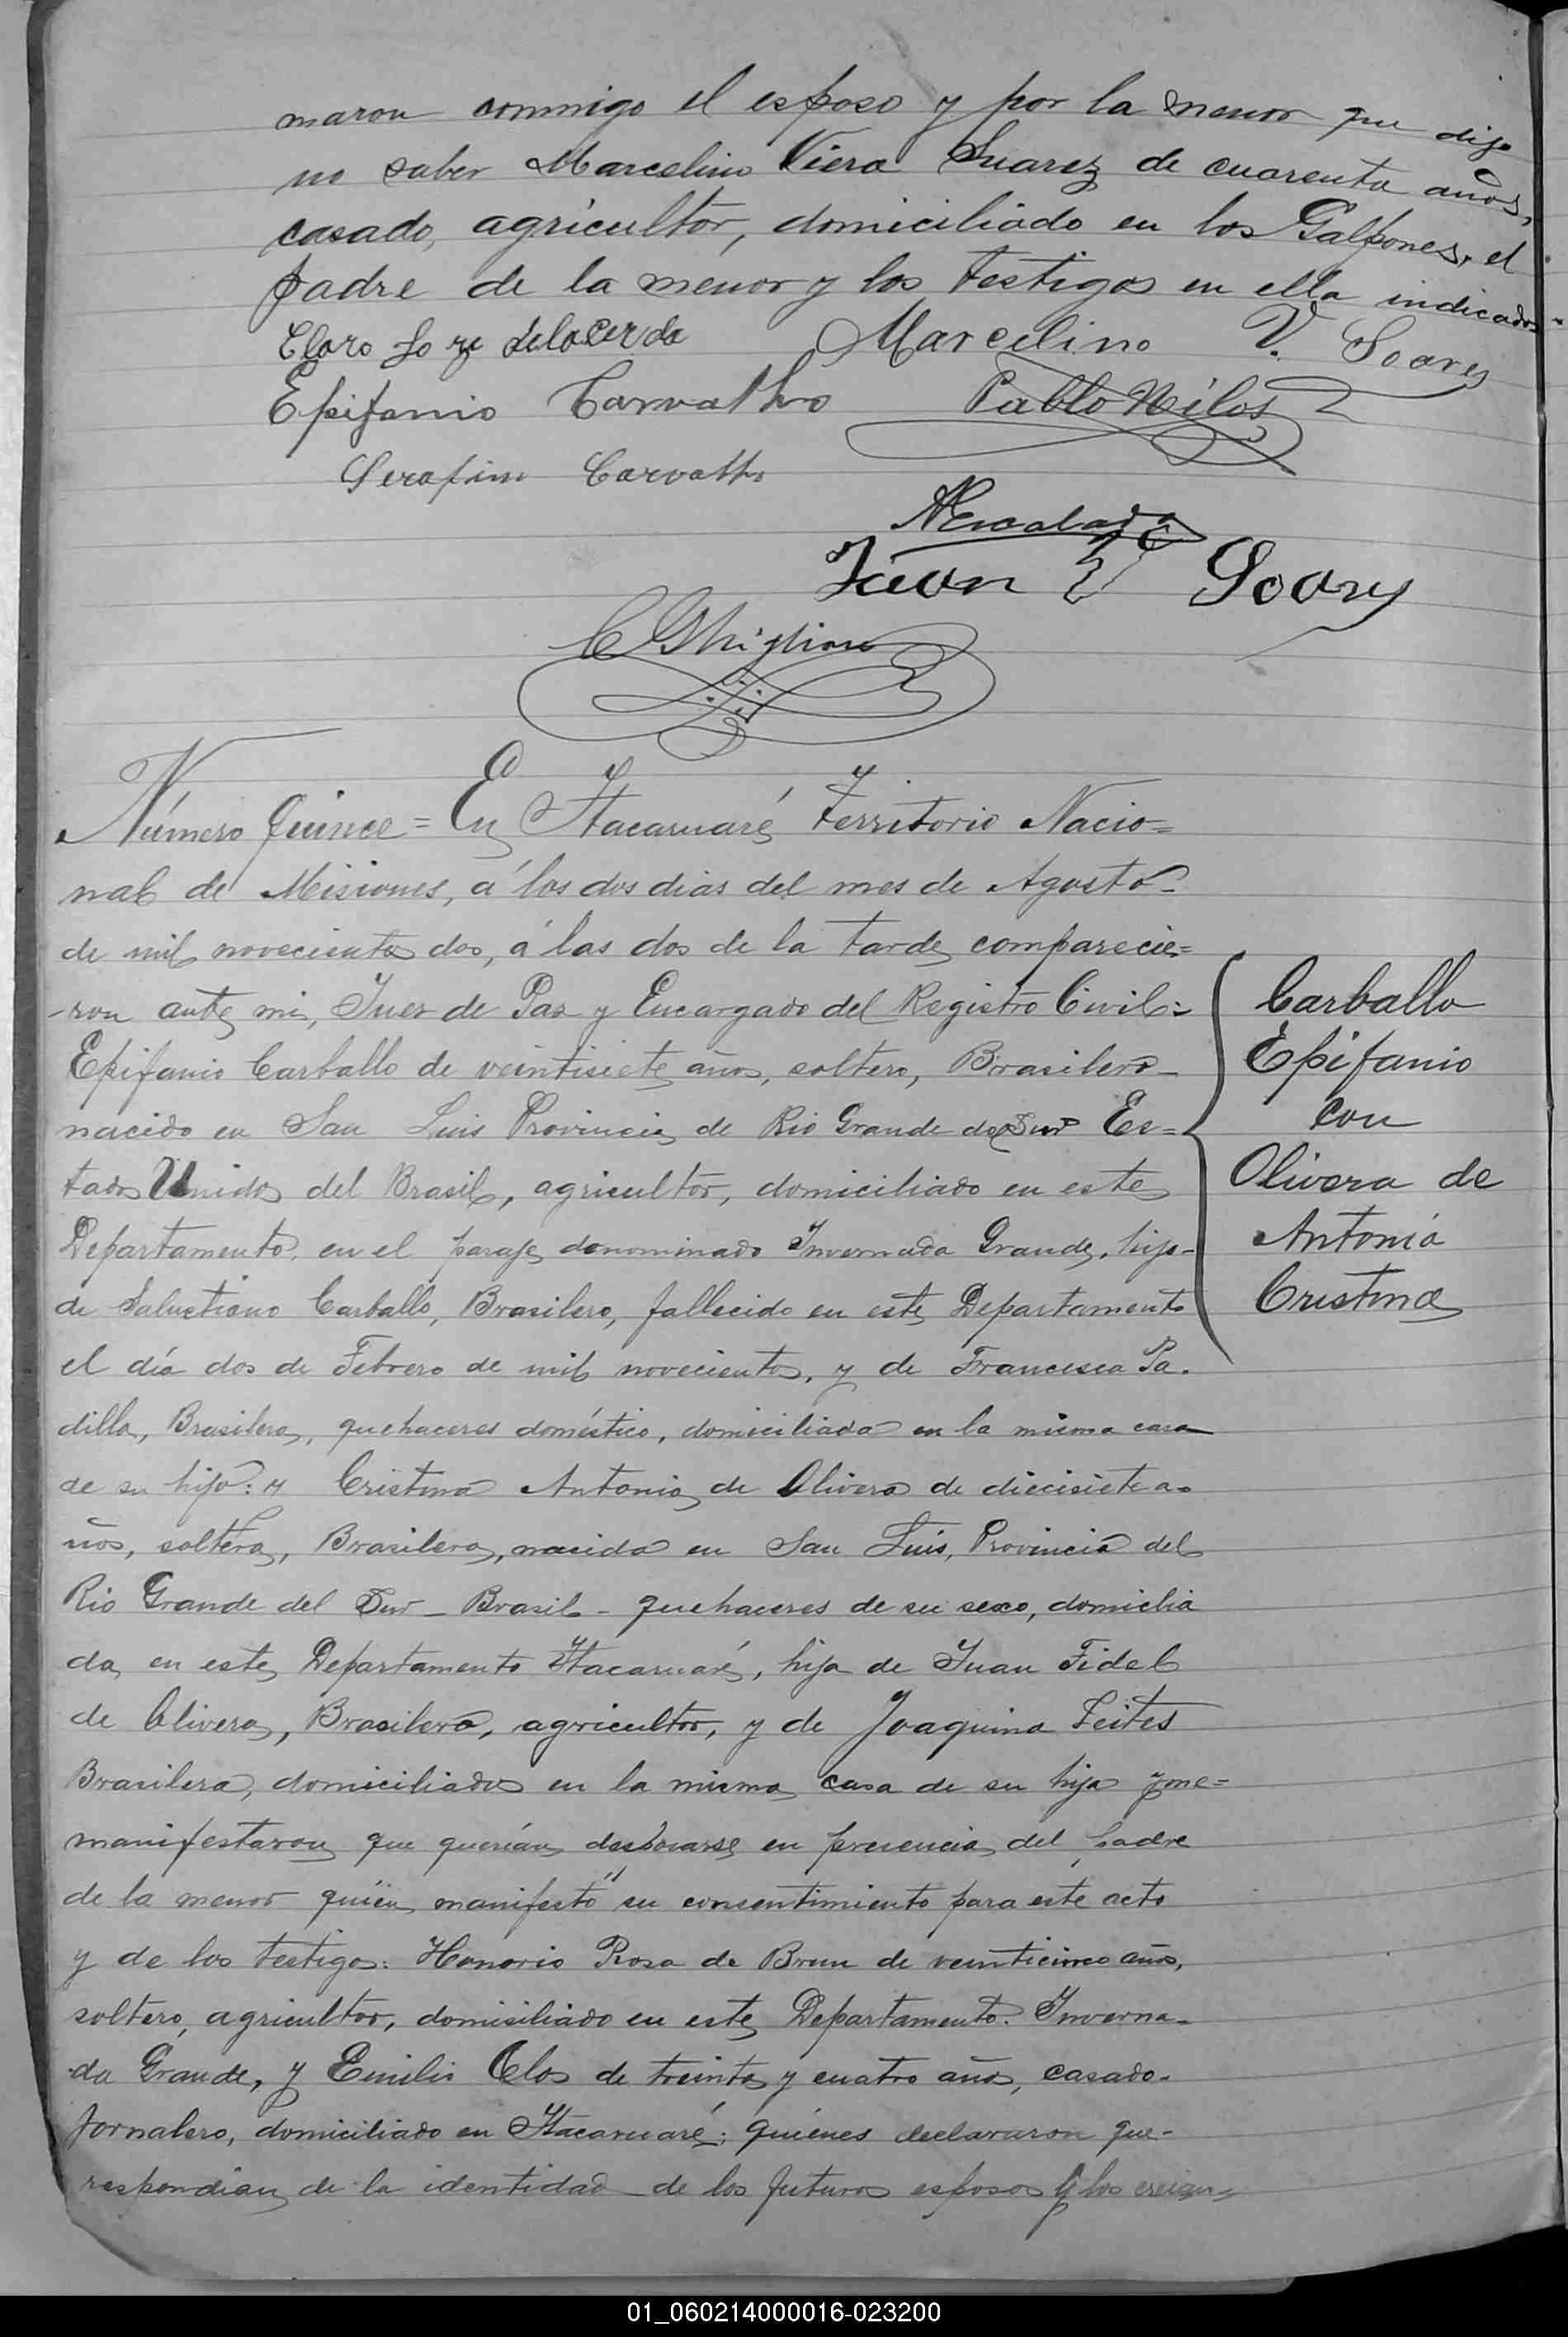 maron conmigo el esposo y por la menor que dijo
no saber Marcelino Viera Suarez de cuarenta años,
casado, agricultor, domiciliado en los Galpones, el
padre de la menor y los testigos en ella indicados=
Claro de la Cerda
Marcelino V. Soares
Epifanio Carvalho
Pablo
Serafim Carvalho
Juan Soares
C Ghiglione
Número Quince = En Itacaruaré, Territorio Nacio=
nal de Misiones, á los dos dias del mes de Agosto-
de mil novecientos dos, á las dos de la tarde, comparecie=
-ron ante mi, Juez de Paz y Encargado del Registro Civil:=
Epifanio Carballo de veintisiete años, soltero, Brasilero-
nacido en San Luis Provincia de Rio Grande del Sur Es=
tados Unidos del Brasil, agricultor, domiciliado en este
Departamento, en el paraje denominado Invernada Grande, hijo-
de Salustiano Carballo, Brasilero, fallecido en este Departamento
el día dos de Febrero de mil novecientos, y de Francisca Pa-
dilla, Brasilera, quehaceres doméstico, domiciliada en la misma casa
de su hijo: y Cristina Antonia de Olivera de diecisiete a-
ños, soltera, Brasilera, nacida en San Luis, Provincia del
Rio Grande del Sur - Brasil - quehaceres de su sexo, domicilia
da en este Departamento Itacaruaré, hija de Juan Fidel
de Olivera, Brasilero, agricultor, y de Joaquina Leites
Brasilera, domiciliados en la misma casa de su hija y me=
manifestaron que querían desposarse en presencia del padre
de la menor quien manifestó su consentimiento para este acto
y de los testigos: Honorio Rosa de Brum de veinticinco años,
soltero, agricultor, domisiliado en este Departamento. Inverna-
-da Grande, y Emilio Clos de treinta y cuatro años, casado-
Jornalero, domiciliado en Itacaruaré; quiénes declararon que-
respondian de la identidad de los futuros esposos y los creian=
Carballo
Epifanio
con
Olivera de
Antonia
Cristina
01_060214000016-023200